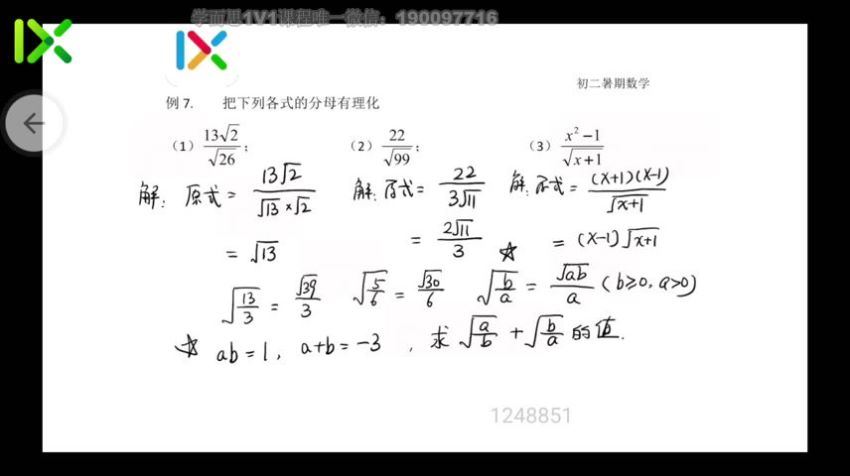 学而思1V1课程唯一微信：190097716
初二暑期数学
例 7. 把下列各式的分母有理化
（1）13√2/√26； （2）22/√99； （3）(x²−1)/√(x+1)
解：原式 = 13√2/(√13×√2) 解：原式 = 22/(3√11) 解：原式 = (x+1)(x-1)/√(x+1)
= √13 = 2√11/3 = (x-1)√(x+1)
√(13/3) = √39/3 √(5/6) = √30/6 ☆ √(b/a) = √(ab)/a (b≥0, a>0)
☆ ab=1, a+b=-3, 求 √(a/b) + √(b/a) 的值.
1248851